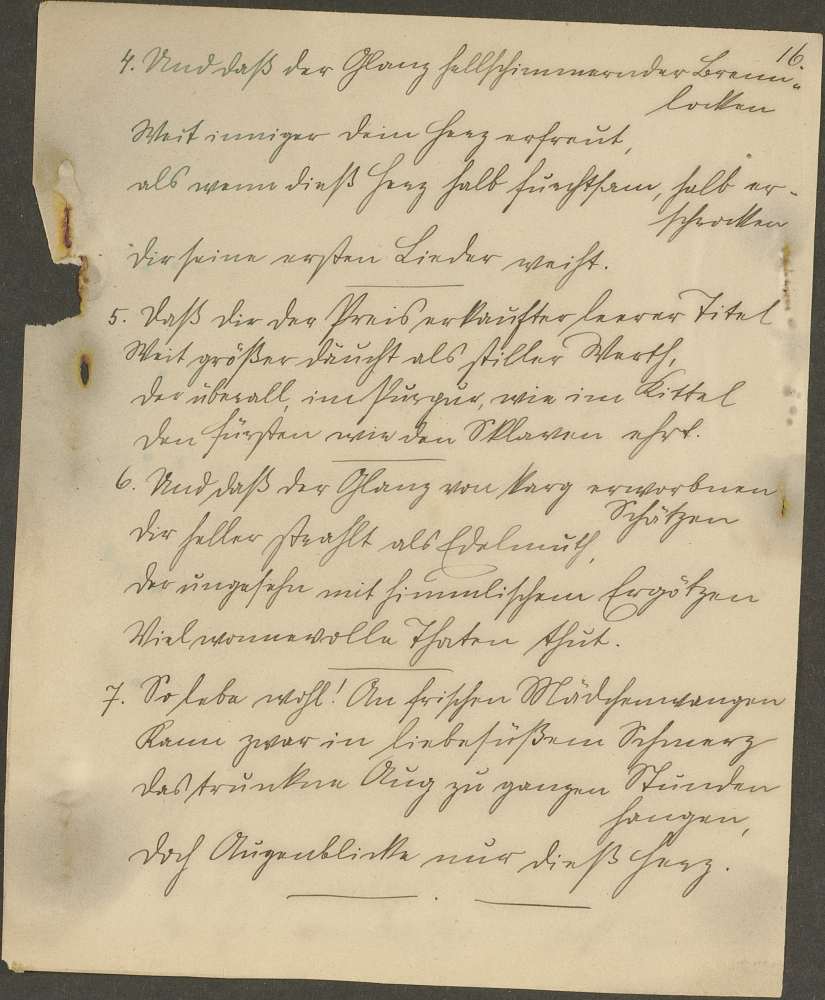 16.
4. Und daß der Glanz hellschimmernder Brenn-
locken
Weit inniger dein Herz erfreut,
als wenn dieß Herz halb furchtsam, halb er-
schrocken
dir seine ersten Lieder weiht.
5. Daß dir der Preis erkaufter leerer Titel
Weit größer däucht als stiller Werth,
der überall, im Purpur, wie im Kittel
den Fürsten wie den Sklaven ehrt.
6. Und daß der Glanz von karg erworbnen
Schätzen
dir heller strahlt als Edelmuth,
der ungesehn mit himmlischem Ergötzen
Viel wonnevolle Thaten thut.
7. So lebe wohl! An frischen Mädchenwangen
Kann zwar in liebesüßem Schmerz
das trunkne Aug zu ganzen Stunden
hangen,
doch Augenblicke nur dieß Herz.